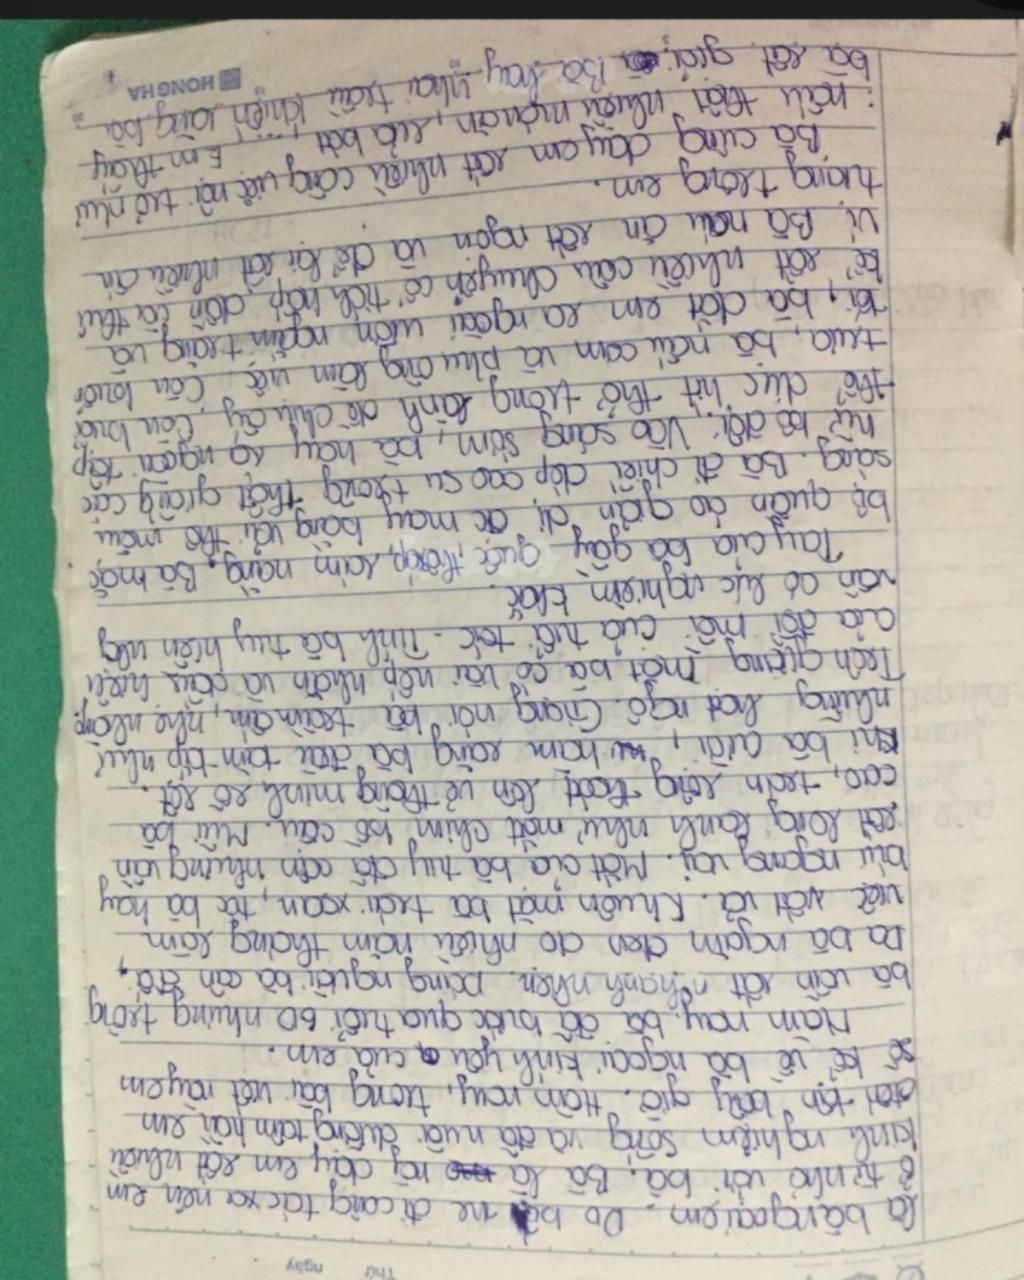 Thứ ngày
là bà ngoại em. Do bố mẹ đi công tác xa nên em
ở từ nhỏ với bà. Bà là ng dạy em rất nhiều
kinh nghiệm sống và đã nuôi dưỡng tâm hồn em
đến tận bây giờ. Hôm nay, trong bài viết này em
sẽ kể về bà ngoại kính yêu của em.
Năm nay, bà đã bước qua tuổi 60 nhưng trông
bà vẫn rất nhanh nhẹn. Dáng người bà cân đối,
Da bà ngăm đen do nhiều năm tháng làm
việc vất vả. Khuôn mặt bà trái xoan, tóc bà hay
búi ngang vai. Mắt của bà tuy đã cận nhưng vẫn
rất long lanh như một chim bồ câu. Mũi bà
cao, trán rộng toát lên vẻ thông minh rõ rệt.
Khi bà cười, hàm răng bà đều tăm tắp như
những hạt ngô. Giọng nói bà trầm ấm, nhẹ nhàng.
Trên gương mặt bà có vài nếp nhăn và dấu hiệu
của đồi mồi của tuổi tác. Tính bà tuy hiền nhưng
vẫn có lúc nghiêm khắc.
Tay của bà gầy guộc, thô ráp, rám nắng. Bà mặc
bộ quần áo giản dị, đc may bằng vải thô màu
sáng. Bà đi chiếc dép cao su trông thật giống các
nữ bộ đội. Vào sáng sớm, bà hay ra ngoài tập
thể dục hít thở trong lành dễ chịu ấy. Còn buổi
trưa, bà nấu cơm và phụ ông làm việc. Còn buổi
tối, bà dắt em ra ngoài vườn ngắm trăng và
kể rất nhiều câu chuyện cổ tích hấp dẫn là thú
vị. Bà nấu ăn rất ngon và để lại rất nhiều ấn
tượng trong em.
Bà cũng dạy em rất nhiều công việc nội trợ như
: nấu thật nhiều món ăn, rửa bát,.... Em thấy
bà rất giỏi. Bà hay nhai trầu khiến răng bà
HONG HA